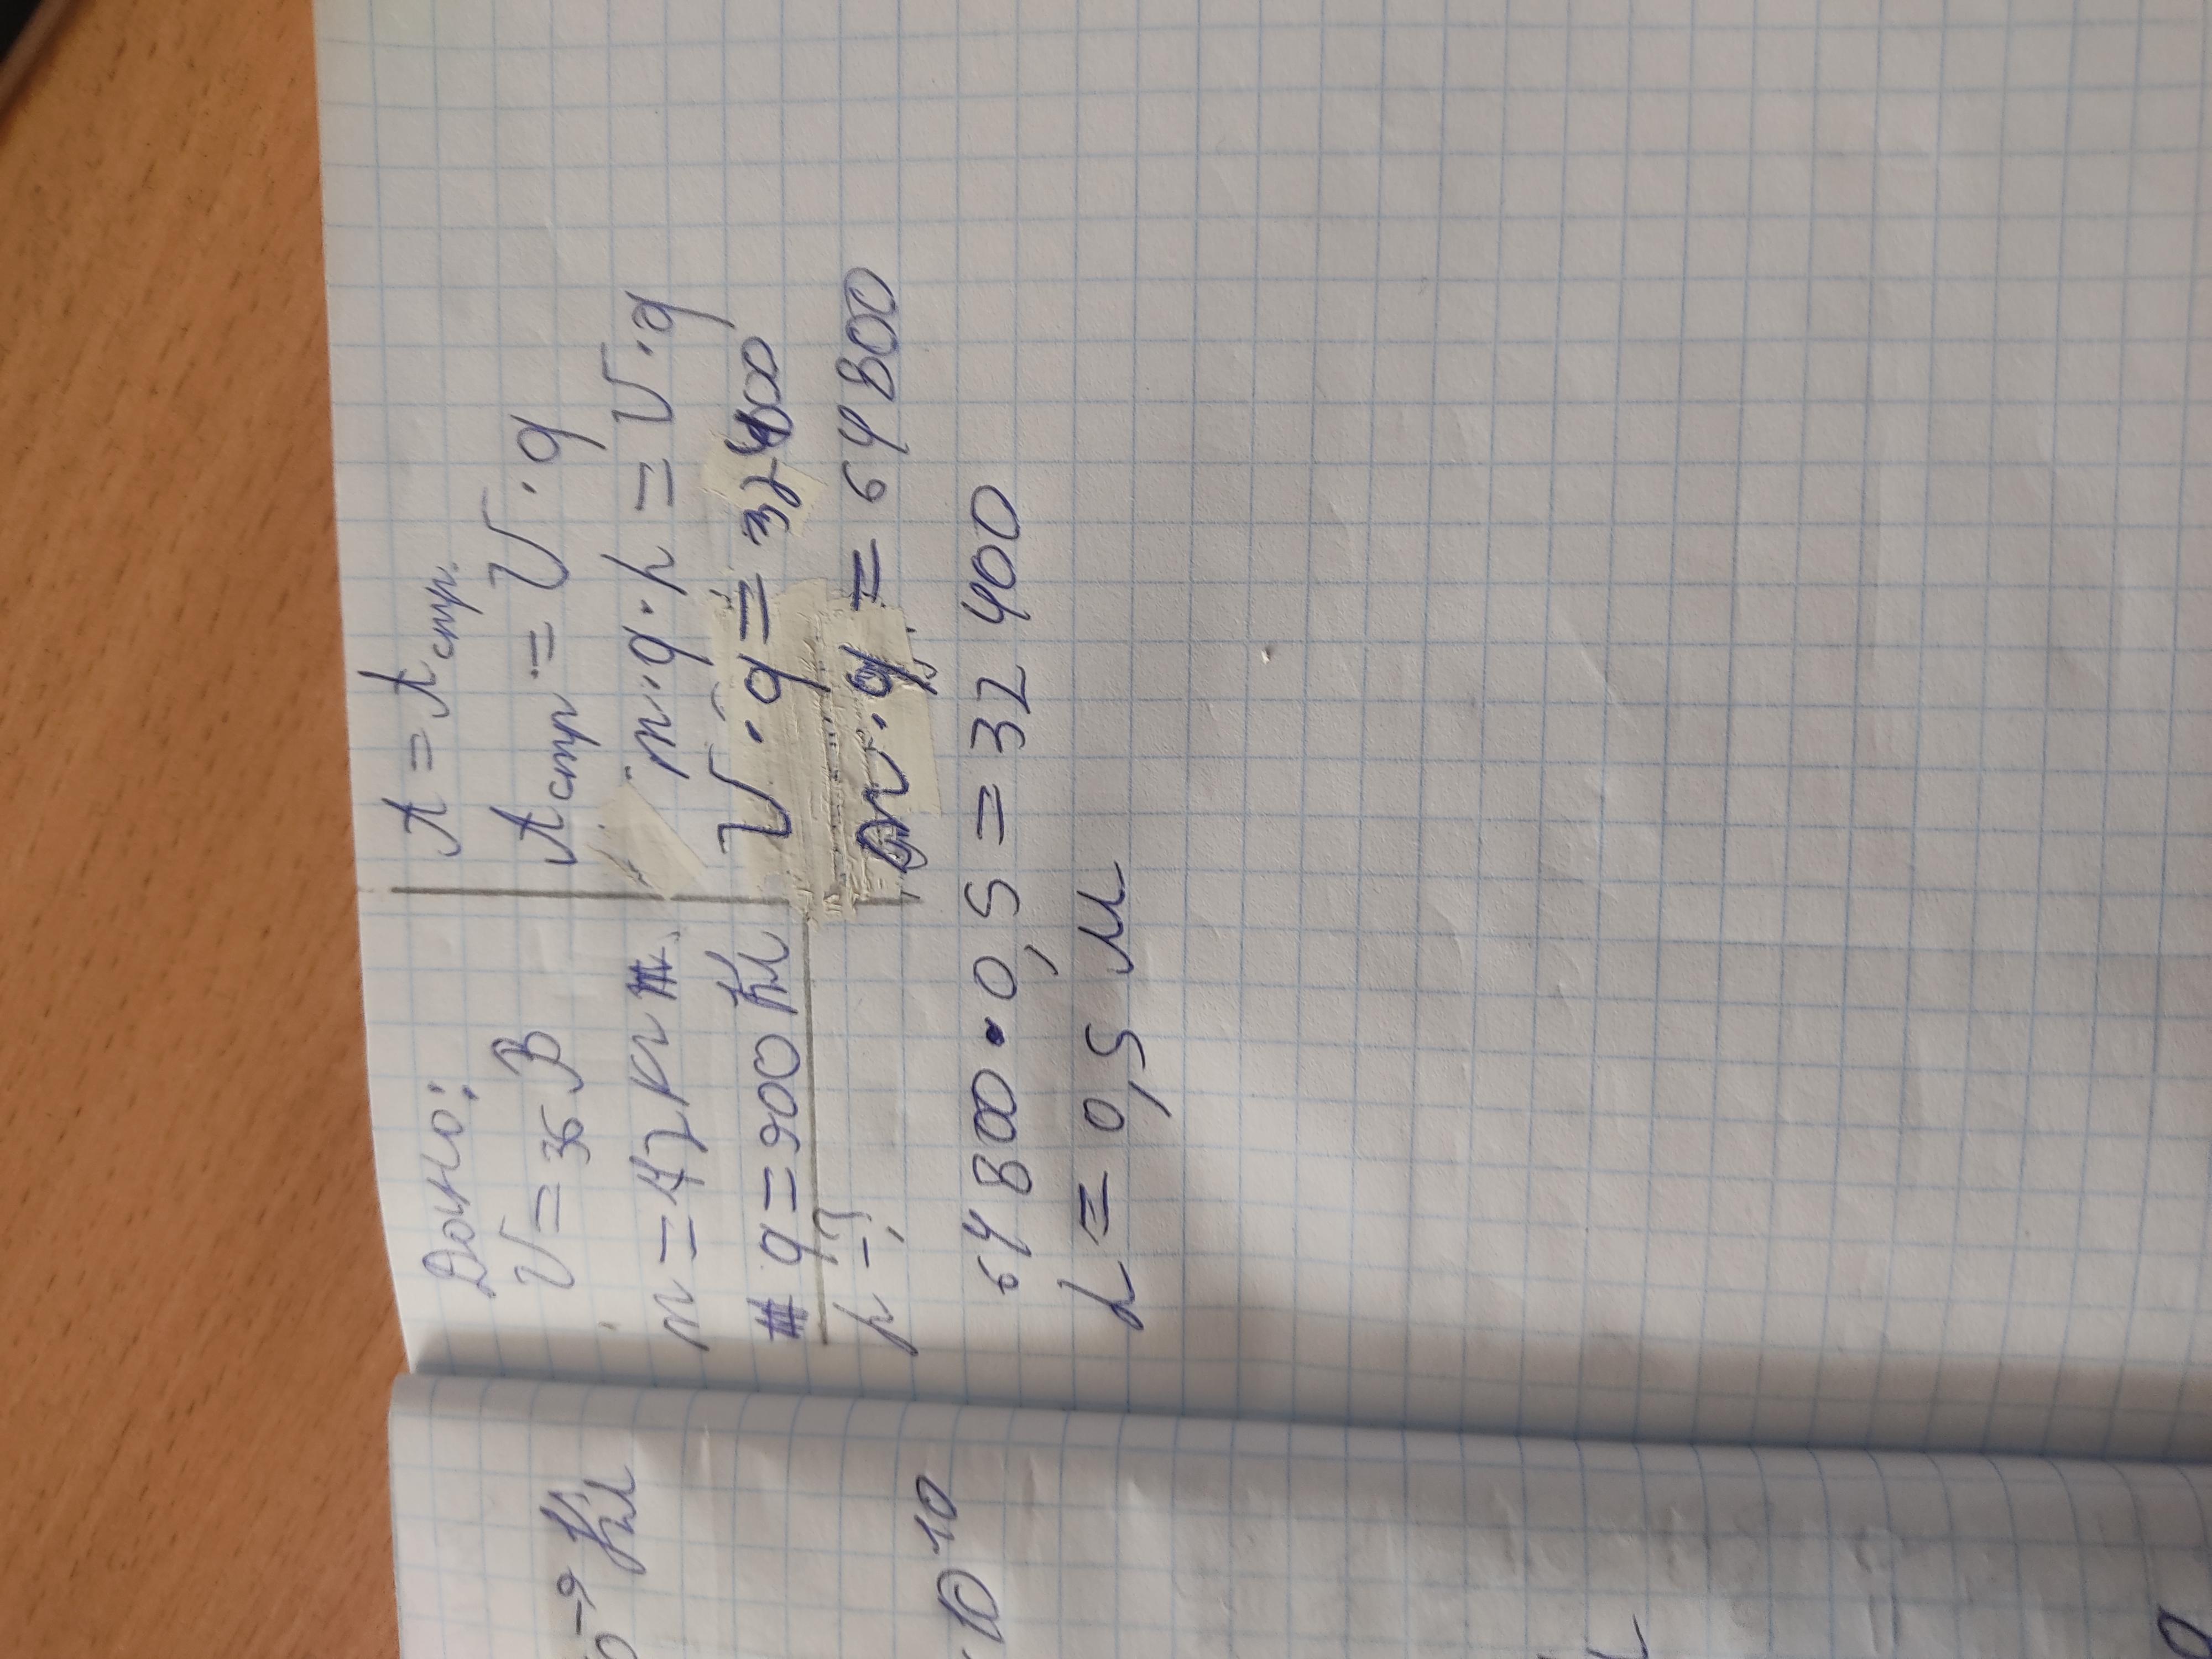 Дано:
U = 36 В
m = 72 кг
q = 900 Кл
h - ?
A = A стр.
A стр = U · q
m · g · h = U · q
U · q = 32400
m · g = 64 800
64 800 · 0,5 = 32 400
h = 0,5 м
-9 Кл
10 10